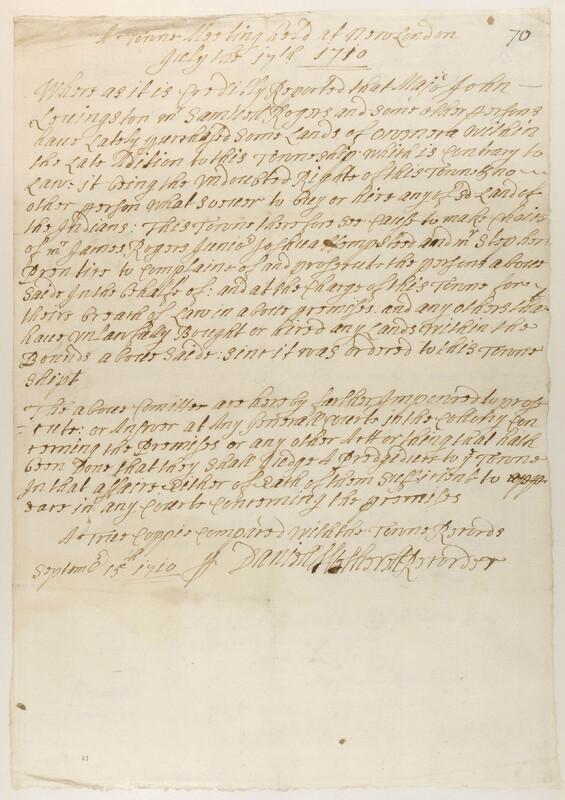 70
A Towne Meeting held at New London
July the 17th 1710
Where as it is Credilly Reported that Majr John
Levingston mr Samuell Rogers and some other persons
have Lately purchased Some Lands of owoneco within
the Late Adition to this Towneship which is Contrary to
Law: it being the Undouted Righte of this Towne & no
other person what soever to buy or hire any of sd Land of
the Indians: This Towne therefore see Cause to make Choice
of mr James Rogers Junior Joshua Hempsted and mr Stephen
Prentise to Complaine of and prosecute the persons above
Saide In the behalfe of: and at the Charge of this Towne for
theire breath of Law in above premises: and any others that
have Unlawfully Bought or hired any Lands within the
Bounds above Saide: since it was ordered to this Towne
Shipt
The above Comittee are hereby farther Impowred to pros
=cute: or Answer at Any Generall Courte in the Collony Con
cerning the Premises or any other Act or thing that hath
been Done that they Shall Judge A Predgediere to ye Towne
In that affaire Either of Each of them Suffitient to appe
eare in any Courte Concerning the premises
A true Coppie Compared with the Towne Records
Septemr 15th 1710 pr Daniell Wetherell Recorder